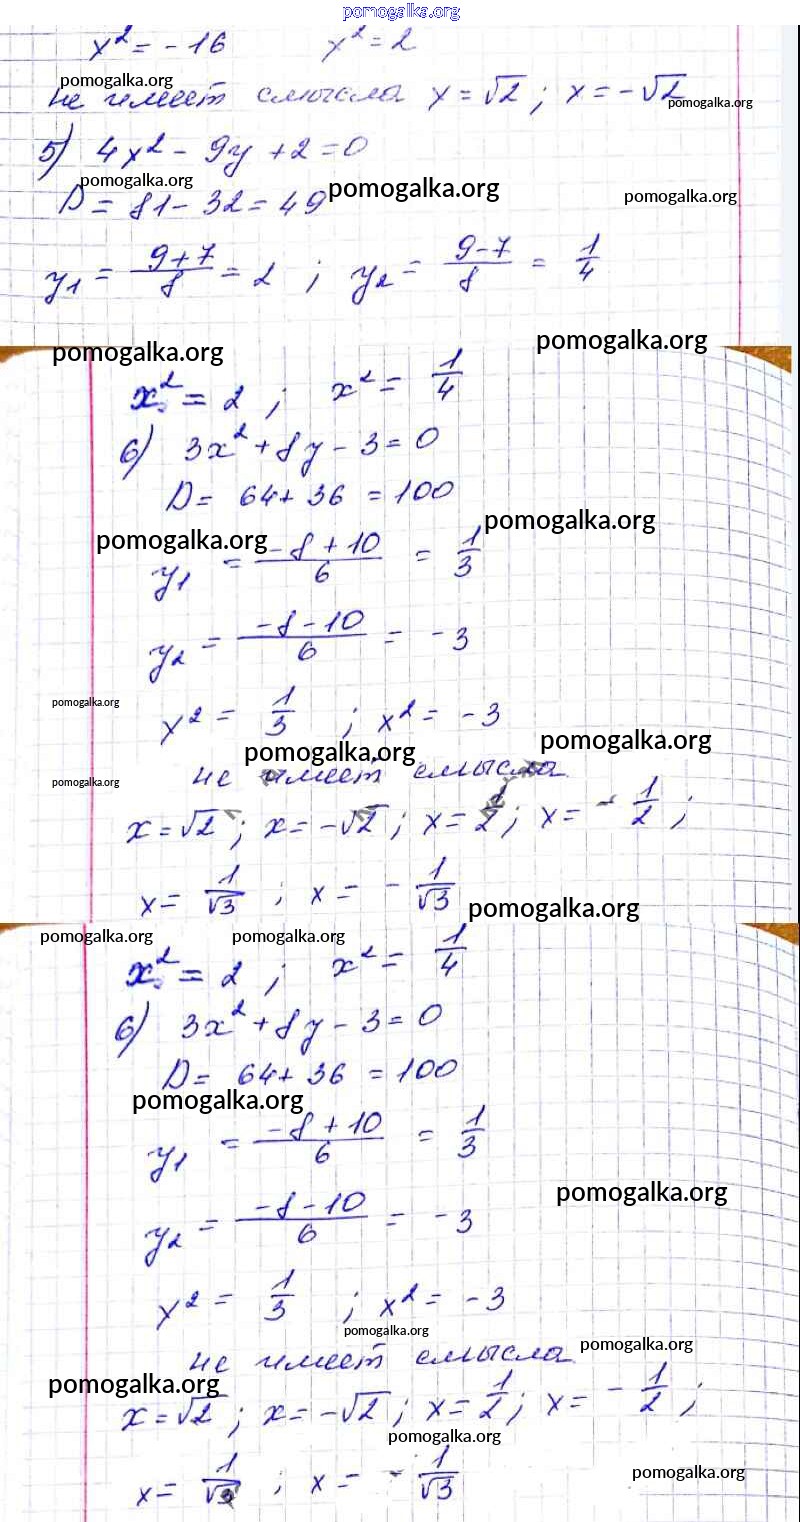 pomogalka.org
x² = -16 x² = 2
pomogalka.org
не имеет смысла x = √2 ; x = -√2
pomogalka.org
5) 4x² - 9y + 2 = 0
pomogalka.org
D = 81 - 32 = 49 pomogalka.org pomogalka.org
y₁ = (9+7)/8 = 2 ; y₂ = (9-7)/8 = 1/4
pomogalka.org pomogalka.org
x² = 2 ; x² = 1/4
6) 3x² + 8y - 3 = 0
D = 64 + 36 = 100
pomogalka.org pomogalka.org
y₁ = (-8+10)/6 = 1/3
y₂ = (-8-10)/6 = -3
pomogalka.org
x² = 1/3 ; x² = -3
pomogalka.org pomogalka.org
не имеет смысла
pomogalka.org
x = √2 ; x = -√2 ; x = 1/2 ; x = -1/2 ;
x = 1/√3 ; x = -1/√3
pomogalka.org
pomogalka.org pomogalka.org
x² = 2 ; x² = 1/4
6) 3x² + 8y - 3 = 0
D = 64 + 36 = 100
pomogalka.org
y₁ = (-8+10)/6 = 1/3
pomogalka.org
y₂ = (-8-10)/6 = -3
x² = 1/3 ; x² = -3
pomogalka.org pomogalka.org
не имеет смысла
pomogalka.org
x = √2 ; x = -√2 ; x = 1/2 ; x = -1/2 ;
pomogalka.org
x = 1/√3 ; x = -1/√3
pomogalka.org